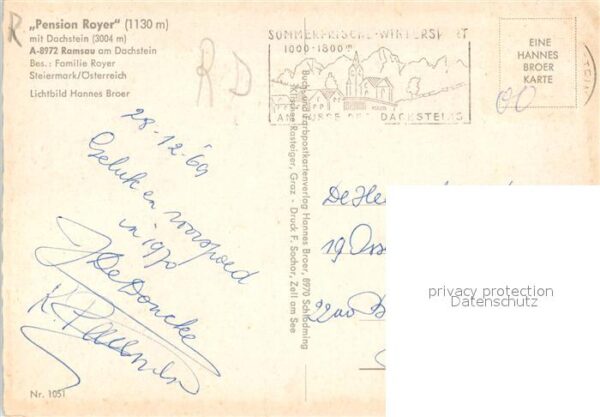 „Pension Royer" (1130 m)
mit Dachstein (3004 m)
A-8972 Ramsau am Dachstein
Bes.: Familie Royer
Steiermark/Österreich
Lichtbild Hannes Broer
R
R D
SOMMERFRISCHE · WINTERSPORT
1000-1800 m
AM FUSSE DES DACHSTEINS
EINE
HANNES
BROER
KARTE
28-12-69
Geluk en voorspoed
in 1970
J De Doncke
Buch- und Farbpostkartenverlag Hannes Broer, 8970 Schladming
Rasteiger, Graz - Druck F. Sochor, Zell am See
De
19
2200 B
privacy protection
Datenschutz
Nr. 1051